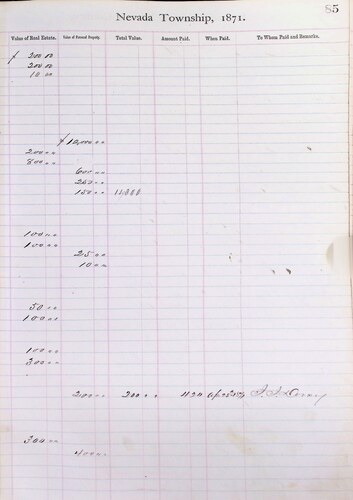 85
Nevada Township, 1871.
Value of Real Estate. Value of Personal Property. Total Value. Amount Paid. When Paid. To Whom Paid and Remarks.
$ 200 00
200 00
10 00
$ 12,000 00
200 00
800 00
600 00
250 00
150 00 11,000
100 00
100 00
25 00
10 00
50 00
100 00
100 00
300 00
200 00 200 00 4 20
300 00
400 00